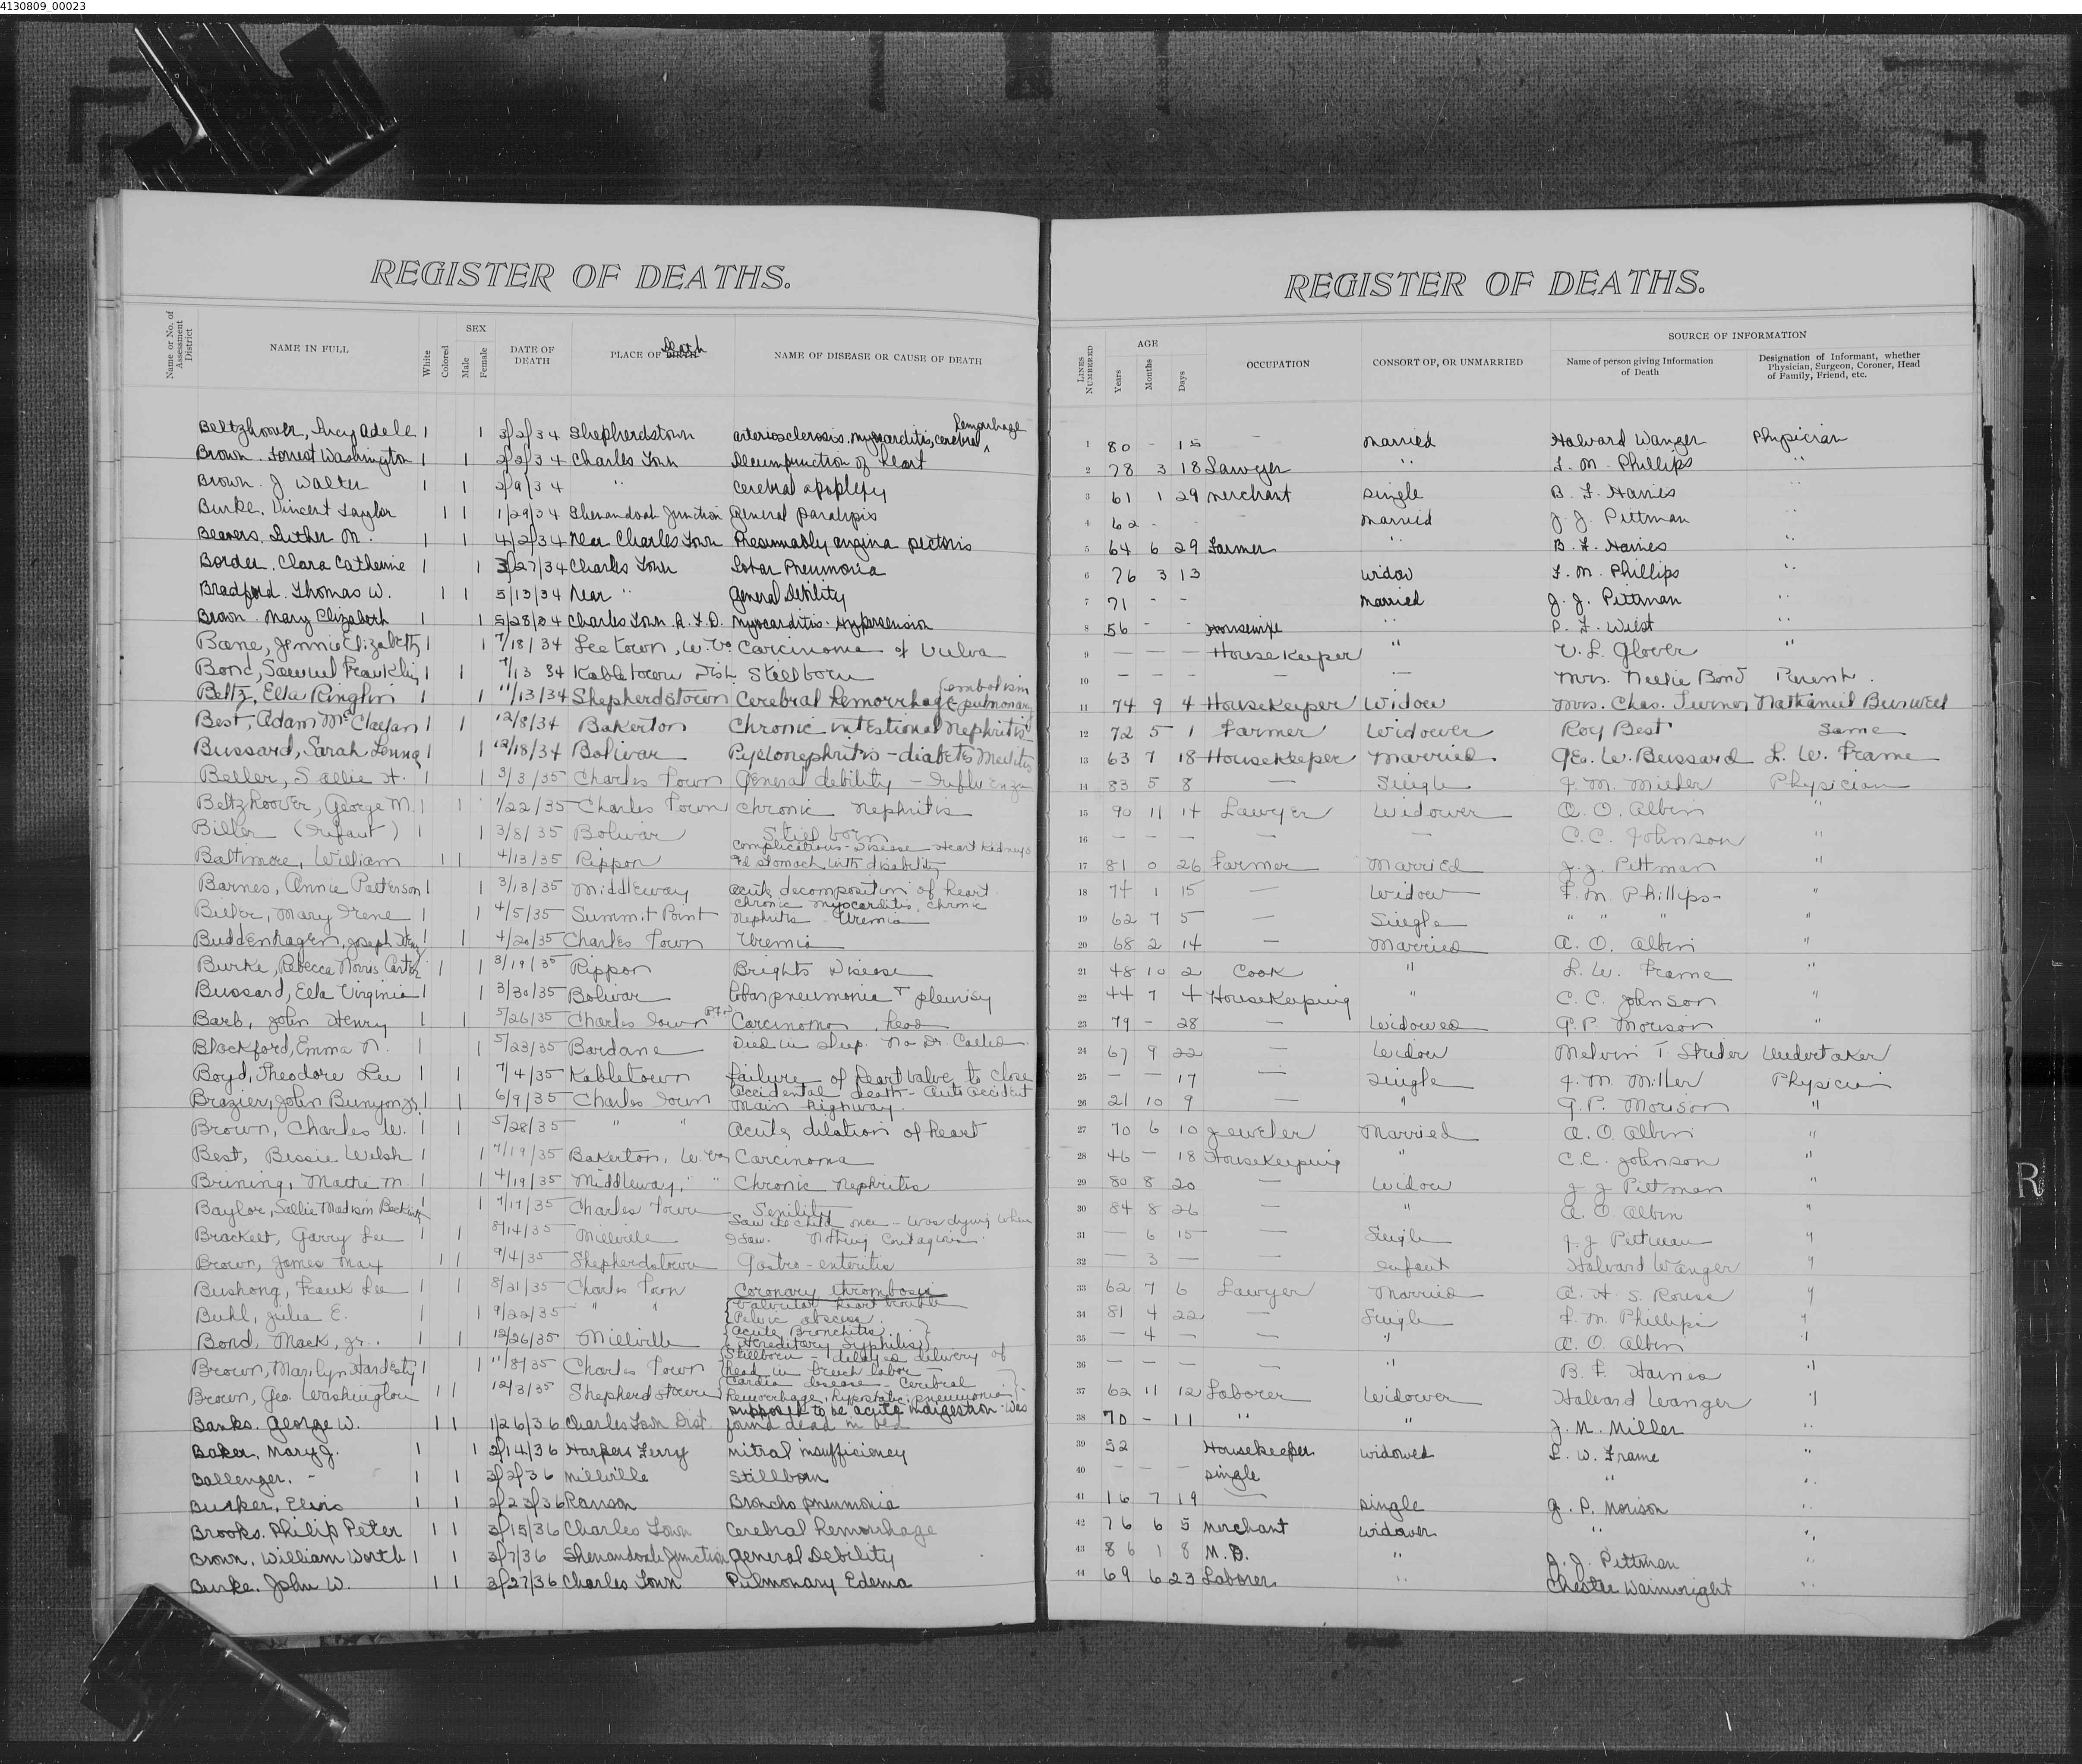 4130809_00023
REGISTER OF DEATHS.
Name or No. of Assessment District
NAME IN FULL
White
Colored
SEX
Male
Female
DATE OF DEATH
PLACE OF BIRTH Death
NAME OF DISEASE OR CAUSE OF DEATH
Beltzhoover, Lucy Adele 1 1 3/2/34 Shepherdstown arteriosclerosis, myocarditis, cerebral hemorrhage
Brown, Forrest Washington 1 1 2/2/34 Charles Town Decompunction of heart
Brown, J Walter 1 1 2/9/34 " Cerebral apoplexy
Burke, Vincent Taylor 1 1 1/29/34 Shenandoah Junction General paralysis
Beavers, Luther M. 1 1 4/2/34 Near Charles Town Presumably angina pectoris
Border, Clara Catherine 1 1 3/27/34 Charles Town Lobar Pneumonia
Bradford, Thomas W. 1 1 5/13/34 Near " General Debility
Brown, Mary Elizabeth 1 1 5/28/34 Charles Town R.F.D. Myocarditis. Hypertension
Bane, Jennie Elizabeth 1 1 7/18/34 Leetown, W.Va Carcinoma of Vulva
Bond, Samuel Franklin 1 1 7/13 34 Kabletown Dist. Stillborn
Beltz, Ella Ringlin 1 1 11/13/34 Shepherdstown Cerebral Hemorrhage pulmonary embolism
Best, Adam McClay 1 1 12/8/34 Bakerton Chronic intestional Nephritis
Bussard, Sarah Lenna 1 1 12/18/34 Bolivar Pyelonephritis - diabetes Mellitis
Beller, Sallie H. 1 1 3/3/35 Charles Town General debility - Influenza
Beltzhoover, George M. 1 1 1/22/35 Charles Town Chronic Nephritis
Biller (Infant) 1 1 3/8/35 Bolivar Still born
Baltimore, William 1 1 4/13/35 Rippon Complications - Disease Heart Kidneys and stomach with disability
Barnes, Annie Patterson 1 1 3/13/35 Middleway acute decomposition of heart
Bieler, Mary Irene 1 1 4/5/35 Summit Point Chronic myocarditis, chronic Nephritis Uremia
Buddenhagen, Joseph 1 1 4/20/35 Charles Town Uremia
Burke, Rebecca Norris Carter 1 1 3/19/35 Rippon Brights Disease
Bussard, Ella Virginia 1 1 3/30/35 Bolivar lobar pneumonia + pleurisy
Barb, John Henry 1 1 5/26/35 Charles Town Carcinoma, head
Blackford, Emma N. 1 1 5/23/35 Bardane Died in sleep. No Dr. Called
Boyd, Theodore Lee 1 1 7/4/35 Kabletown failure of heart valve to close
Brazier, John Bunyon Jr. 1 1 6/9/35 Charles Town Accidental death - Auto accident Main highway.
Brown, Charles W. 1 1 5/28/35 " " Acute dilation of heart
Best, Bessie Welsh 1 1 7/19/35 Bakerton, W.Va Carcinoma
Brining, Mattie M. 1 1 4/19/35 Middleway, " Chronic Nephritis
Baylor, Sallie Madison 1 1 7/17/35 Charles Town Senility
Brackett, Garry Lee 1 1 8/14/35 Millville Saw the child once - was dying when I saw. Nothing Contagious.
Brown, James Max 1 1 9/4/35 Shepherdstown Gastro-enteritis
Bushong, Frank Lee 1 1 8/21/35 Charles Town Coronary thrombosis
Buhl, Julia E. 1 1 9/22/35 " " Valvular heart trouble Pelvic abscess
Bond, Mack, Jr. 1 1 12/26/35 Millville Acute Bronchitis. Hereditary Syphilis
Brown, Marilyn Hardesty 1 1 11/8/35 Charles Town Stillborn - delayed delivery of head in breech labor
Brown, Geo. Washington 1 1 12/3/35 Shepherdstown Cardia disease - Cerebral Hemorrhage, hypostatic pneumonia
Banks, George W. 1 1 1/26/36 Charles Town Dist. supposed to be acute indigestion - was found dead in bed
Baker, Mary J. 1 1 2/14/36 Harpers Ferry mitral insufficiency
Ballenger, - 1 1 3/2/36 Millville Stillborn
Busker, Elvis 1 1 2/23/36 Ranson Broncho pneumonia
Brooks, Philip Peter 1 1 3/15/36 Charles Town Cerebral hemorrhage
Brown, William Worth 1 1 3/7/36 Shenandoah Junction General Debility
Burke, John W. 1 1 3/27/36 Charles Town Pulmonary Edema
REGISTER OF DEATHS.
LINES NUMBERED
AGE
Years
Months
Days
OCCUPATION
CONSORT OF, OR UNMARRIED
SOURCE OF INFORMATION
Name of person giving Information of Death
Designation of Informant, whether Physician, Surgeon, Coroner, Head of Family, Friend, etc.
1 80 - 15 - married Halvard Wanger Physician
2 78 3 18 Lawyer " F. M. Phillips "
3 61 1 29 merchant single B. F. Haines "
4 62 - - married J. J. Pittman "
5 64 6 29 Farmer " B. F. Haines "
6 76 3 13 widow F. M. Phillips "
7 71 - - married J. J. Pittman "
8 56 - - Housewife " P. F. Wilst "
9 — — — Housekeeper " V. L. Glover "
10 — — — — — Mrs. Nellie Bond Parent.
11 74 9 4 Housekeeper Widow Mrs. Chas. Turner Nathaniel Burwell
12 72 5 1 Farmer Widower Roy Best Same
13 63 7 18 Housekeeper Married Ge. W. Bussard L. W. Frame
14 83 5 8 — Single J. M. Miller Physician
15 90 11 14 Lawyer Widower A. O. Albin "
16 — — — — — C. C. Johnson "
17 81 0 26 Farmer Married J. J. Pittman "
18 74 1 15 — Widow F. M. Phillips- "
19 62 7 5 — Single " " " "
20 68 2 14 — Married A. O. Albin "
21 48 10 2 Cook " L. W. Frame "
22 44 7 4 Housekeeping " C. C. Johnson "
23 79 - 28 — Widowed G. P. Morison "
24 67 9 22 — Widow Melvin T. Strider Undertaker
25 — — 17 — Single J. M. Miller Physician
26 21 10 9 — " G. P. Morison "
27 70 6 10 Jeweler Married A. O. Albin "
28 46 — 18 Housekeeping " C. C. Johnson "
29 80 8 20 — Widow J J Pittman "
30 84 8 26 — " A. O. Albin "
31 — 6 15 — Single J. J Pittman "
32 — 3 — — Infant Halvard Wanger "
33 62 7 6 Lawyer Married A. H. S. Rouse "
34 81 4 22 — Single F. M. Phillips "
35 — 4 — — " A. O. Albin "
36 — — — — " B. F. Haines "
37 62 11 12 Laborer Widower Halvard Wanger "
38 70 - 11 " " J. M. Miller
39 52 Housekeeper widowed L. W. Frame "
40 - - - single " "
41 16 7 19 — single G. P. Morison "
42 76 6 5 Merchant widower " "
43 86 1 8 M.D. " J. J. Pittman "
44 69 6 23 Laborer " Chester Wainwright "
R